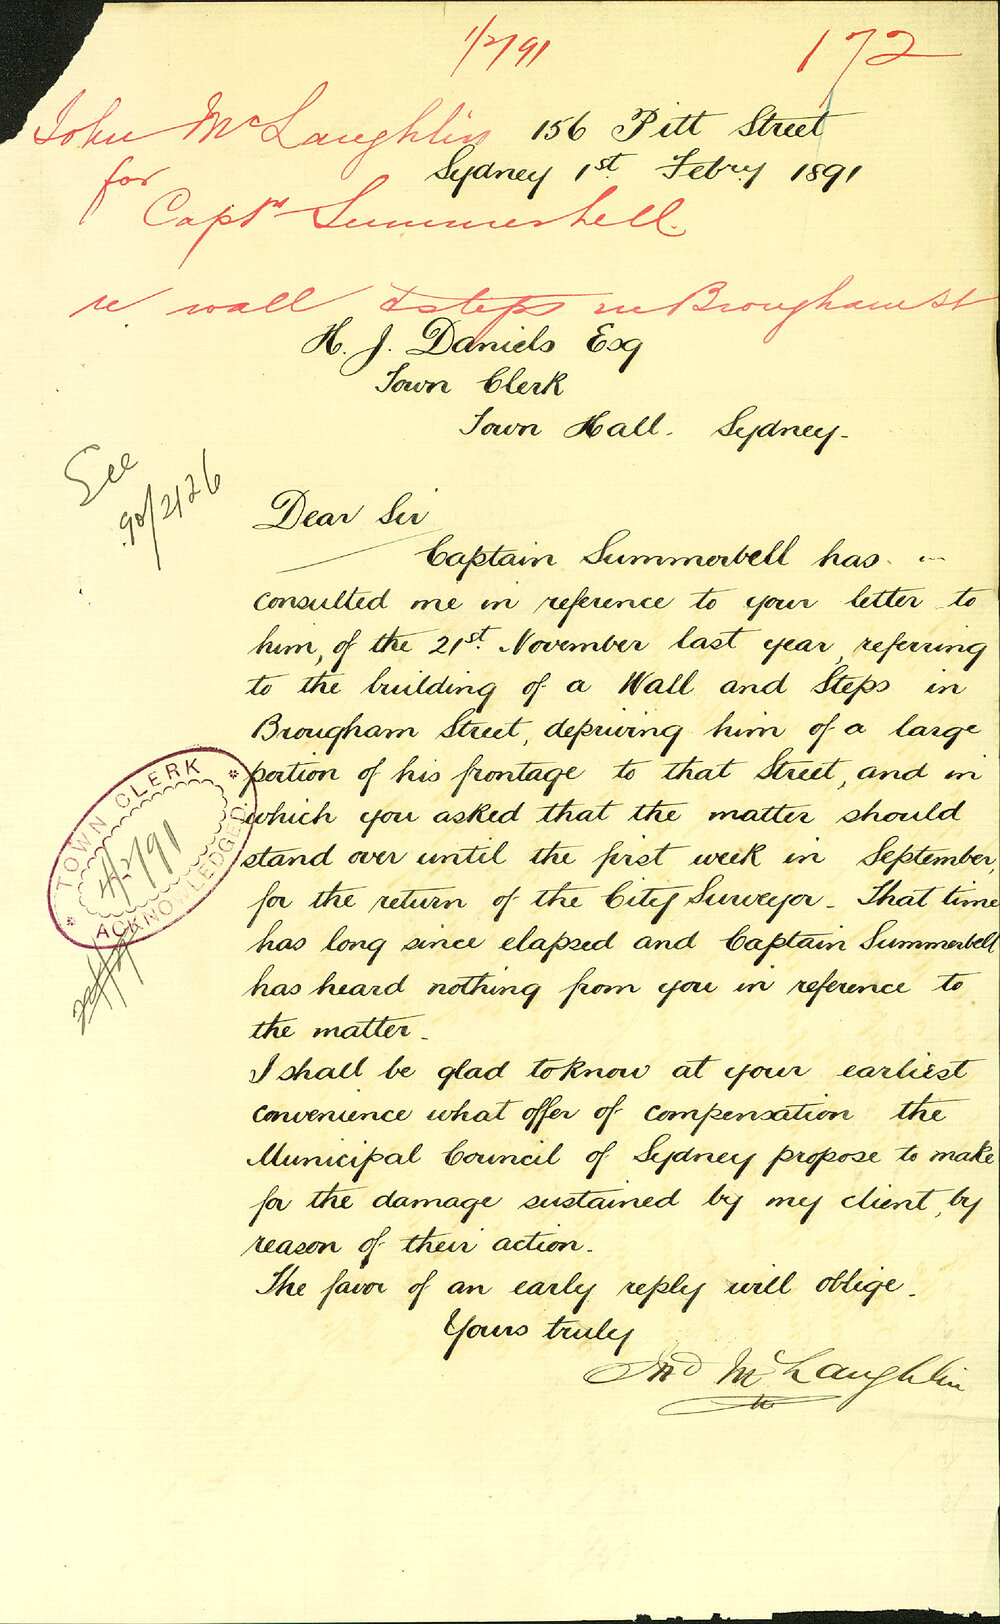 1/2/91
172
John McLaughlin
for
Captn Summerbell.
re wall & steps in Brougham St
156 Pitt Street
Sydney 1st Febry 1891
H. J. Daniels Esq
Town Clerk
Town Hall. Sydney.
See
90/2126
Dear Sir
Captain Summerbell has
consulted me in reference to your letter to
him, of the 21st November last year, referring
to the building of a Wall and Steps in
Brougham Street, depriving him of a large
portion of his frontage to that Street, and in
which you asked that the matter should
stand over until the first week in September,
for the return of the City Surveyor. That time
has long since elapsed and Captain Summerbell
has heard nothing from you in reference to
the matter.
I shall be glad to know at your earliest
convenience what offer of compensation the
Municipal Council of Sydney propose to make
for the damage sustained by my client, by
reason of their action.
The favor of an early reply will oblige.
Yours truly
Jno McLaughlin
TOWN CLERK
4/2/91
ACKNOWLEDGED